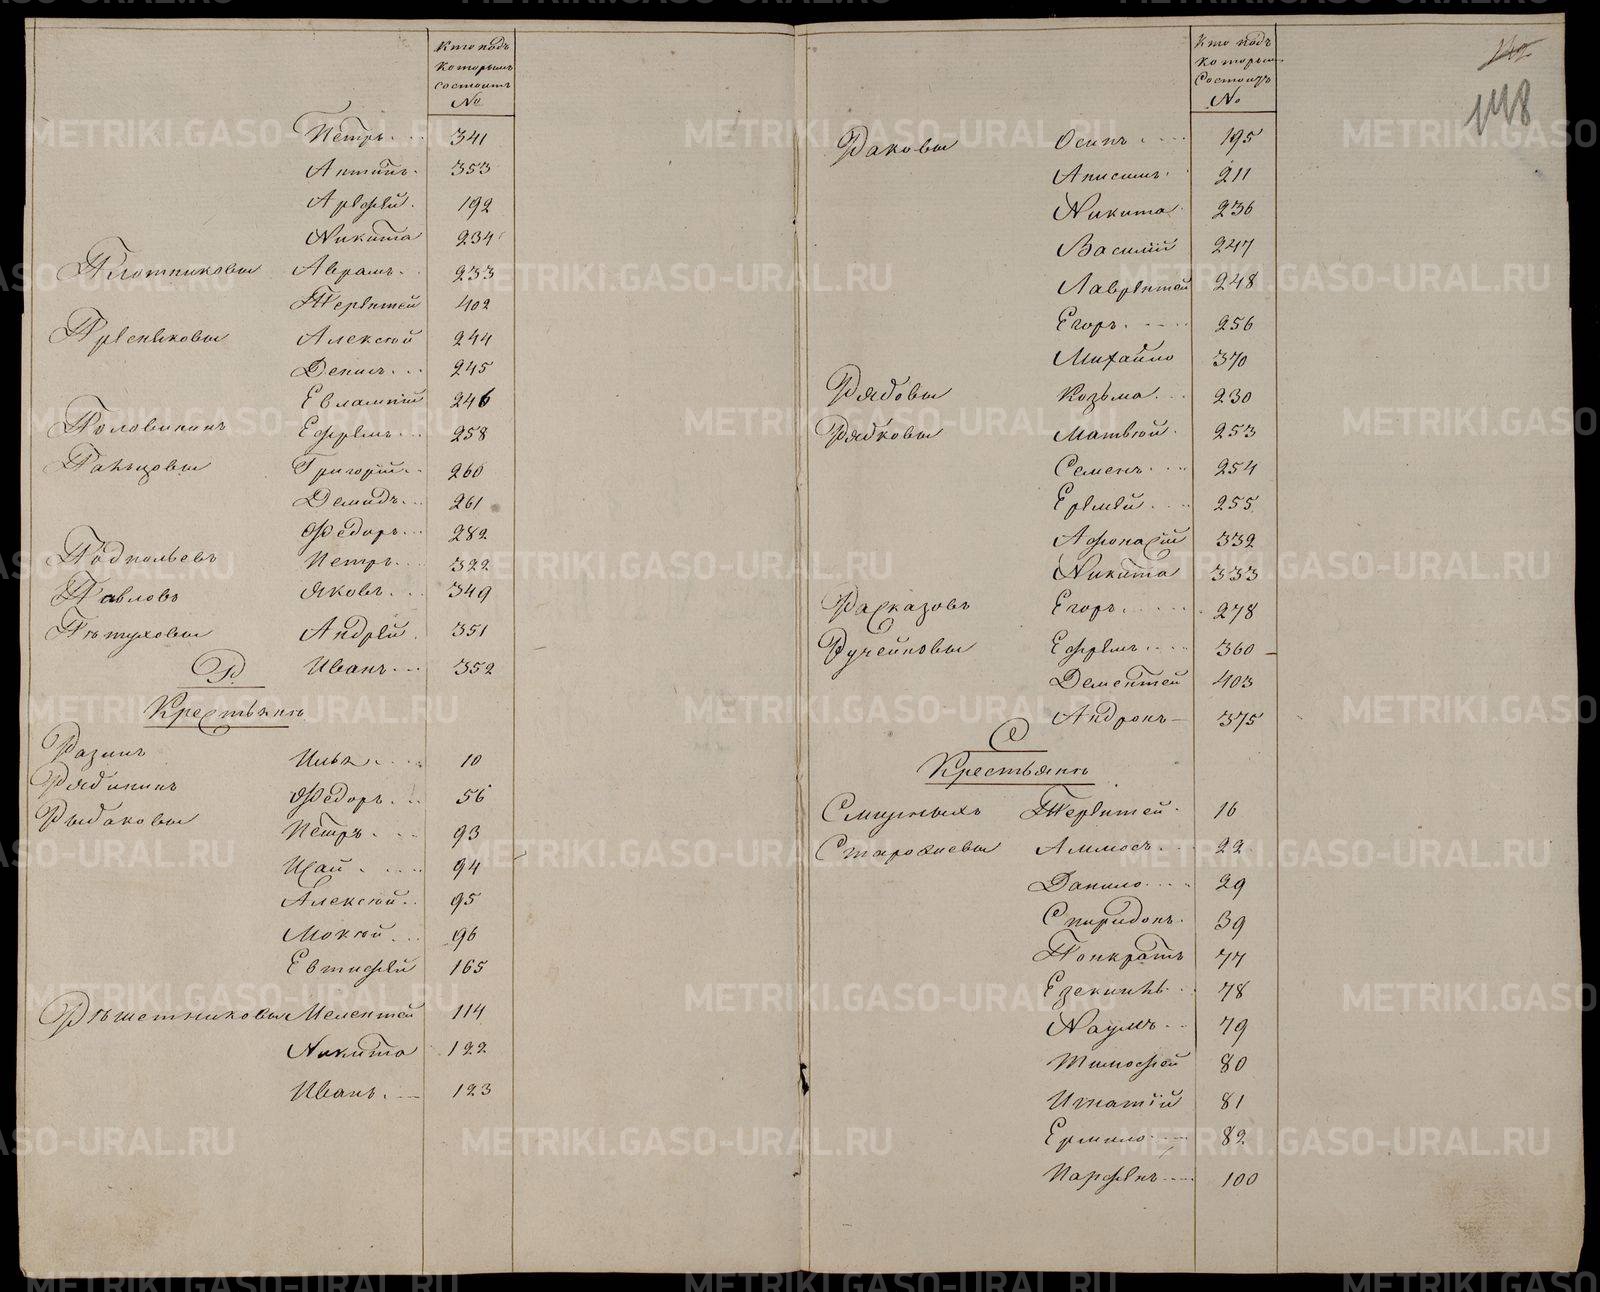 Кто подъ
которымъ
состоитъ
№
Петръ . . . 341
Антипъ . 353
Арефей . 192
Никита 234
Плотниковы Аврамъ . . 233
Терентей 402
Пресняковы Алексѣй 244
Денисъ . . . 245
Евлампій 246
Половинкинъ Ефремъ . . . 258
Григорій . . 260
Демидъ . . . 261
Ѳедоръ . . . 282
Петръ . . . 322
Павловъ Яковъ . . . 349
Пѣтуховы Андрей . 351
Иванъ . . . 352
Р.
Крестьянъ
Разинъ Илья . . . . 10
Рябининъ Ѳедоръ . . . 56
Рыбаковы Петръ . . . 93
Исай . . . . . 94
Алексѣй . . 95
Мокѣй . . . 96
Евтифей 165
Рѣшетниковы Мелентей 114
Никита 122
Иванъ . --- 123
Кто подъ
которым
состоитъ
№
142
148
Раковы Осипъ . . . . 195
Анисимъ . 211
Никита . 236
Василій 247
Лаврентей 248
Егоръ . - - - 256
Михайло 370
Рябовы Козьма . . . 230
Рябковы Матвѣй . 253
Семенъ . . . . 254
Еремѣй . . . . 255
Афонасій 332
Никита 333
Расказовъ Егоръ . . . . . . 278
Ручейковы Ефремъ . . . . 360 -
Дементей 403
Андронъ - 375
С
Крестьянъ
Терентей . 16
Аммосъ . . . 22
Данило . . . . 29
Спиридонъ . 39
Понкратъ 77
Езекіиль . . 78
Наумъ . . 79
Тимофей 80
Игнатій 81
Ермило . . . . . 82
Парфенъ . . . . 100
METRIKI.GASO-URAL.RU